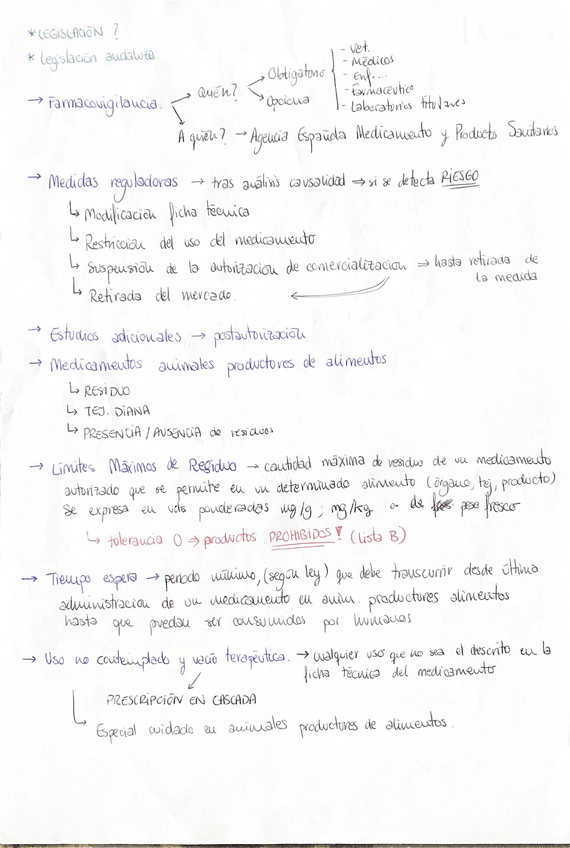 * LEGISLACIÓN ?
* Legislación andaluza
→ Farmacovigilancia. → Quién? → Obligatorio - Vet.
- Médicos
- Enf....
- Farmacéutico
- Laboratorios titulares
→ Opcional
A quién? → Agencia Española Medicamento y Products Sanitarios
→ Medidas reguladoras → tras análisis causalidad ⇒ si se detecta RIESGO
↳ Modificación ficha técnica
↳ Restricción del uso del medicamento
↳ Suspensión de la autorización de comercialización ⇒ hasta retirada de
la medida
↳ Retirada del mercado.
→ Estudios adicionales → postautorización
→ Medicamentos animales productores de alimentos
↳ RESIDUO
↳ TEJ. DIANA
↳ PRESENCIA / AUSENCIA de residuos
→ Límites Máximos de Residuo → cantidad máxima de residuo de un medicamento
autorizado que se permite en un determinado alimento (órgano, tej, producto)
Se expresa en uds ponderadas mg/g ; mg/kg o de peso fresco
↳ tolerancia 0 ⇒ productos PROHIBIDOS! (lista B)
→ Tiempo espera → periodo mínimo, (según ley) que debe transcurrir desde última
administración de un medicamento en anim. productores alimentos
hasta que puedan ser consumidos por humanos
→ Uso no contemplado y vacío terapéutica. → cualquier uso que no sea el descrito en la
ficha técnica del medicamento
PRESCRIPCIÓN EN CASCADA
Especial cuidado en animales productores de alimentos.